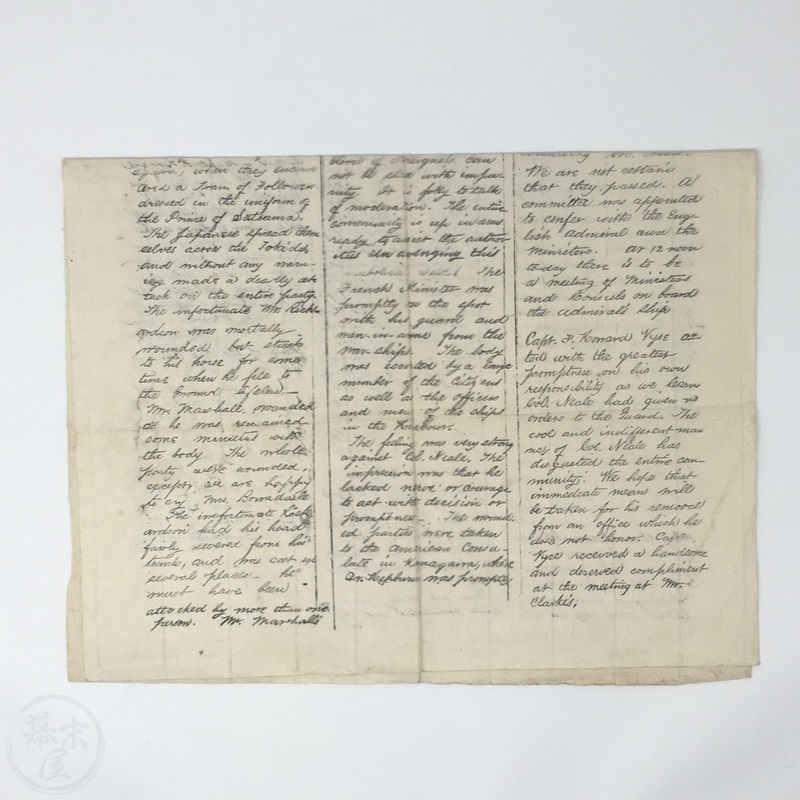 when they encoun
tered a Train of Followers
dressed in the uniform of
the Prince of Satsuma.
The Japanese spread them
selves across the Tokaido
and without any warn-
ing made a deadly at
tack on the entire party.
The infortunate Mr. Rich
ardson was mortally
wounded but stuck
to his horse for some
time when he fell to
the Ground
Mr. Marshall, wounded
as he was remained
some minutes with
the body. The whole
party were wounded,
except, we are happy
to say Mrs. Borradaile
The infortunate Rich
ardson had his head
fairly severed from his
trunk, and was cut in
several places – he
must have been
attacked by more than one
person. Mr. Marshall's
blood of can
not be shed with impu
nity. It is folly to talk
of moderation. The entire
community is up in arms
ready to assist the author
ities in avenging this
deed! The
French Minister was
promptly on the spot
with his guard and
men-in-arms from the
War-ships. The body
was escorted by a large
number of the Citizens
as well as the officers
and men of the ships
in the Harbour.
The feeling was very strong
against Col. Neale. The
impression was that he
lacked nerve or courage
to act with decision or
promptness – The wound
ed parties were taken
to the American Consu-
late in Kanagawa, where
Dr. Hepburn was promptly
We are not certain
that they passed. A
committee was appointed
to confer with the Eng-
lish Admiral and the
Ministers. At 12 noon
to-day there is to be
a meeting of Ministers
and Consuls on board
the Admirals Ship
Capt. F. Howard Vyse ac
ted with the greatest
promptness on his own
responsibility as we learn
Col. Neale had given no
orders to the Guard. The
cool and indifferent man
ner of Col. Neale has
disgusted the entire com-
munity. We hope that
immediate means will
be taken for his removal
from an office which he
does not honor. Captn.
Vyse received a handsome
and deserved compliment
at the meeting at Mr.
Clarke's,
幕末
屋